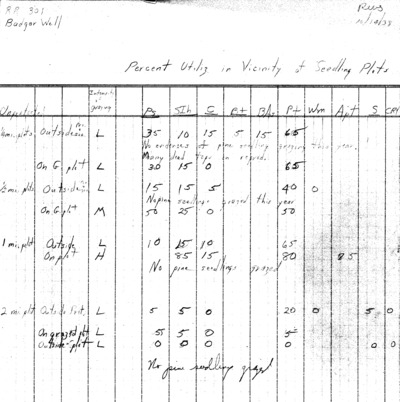 RR 301
Badger Well
Percent Utiliz in Vicinity of Seedling Plots
Intensity of grazing
Po Sth C Bt BAs Pt Wm Apt S
¼ mi. plts. Outside L 35 10 15 5 15 65
No evidence of pine seedling grazing this year.
Many dead tops in reprod.
On G. plt L 30 15 0 65
½ mi. plts Outside L 15 15 5 40 0
No pine seedlings grazed this year
On G. plt M 50 25 0 50
1 mi. plt Outside L 10 15 10 65
On plt H 85 15 80 85
No pine seedlings grazed
2 mi. plt Outside L 5 5 0 20 0 5 0
On grazed plt L 5 5 0 5
Outside plot L 0 0 0 0 0 0
No pine seedlings grazed